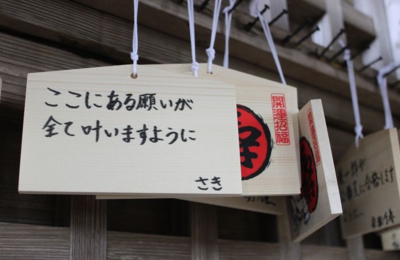 ここにある願いが
全て叶いますように
さき
開運招福